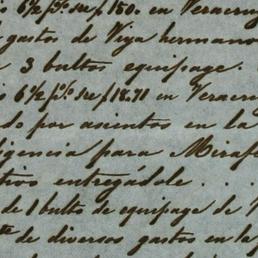 6½ p% sre $150. en Veracruz
gastos de Viya hermano
3 bultos equipage.
6½ p% sre $18.71 en Veracruz
do por asientos en la
igencia para Miraf
tivos entregádole . . .
de 1 bulto de equipage de V
de diversos gastos en la